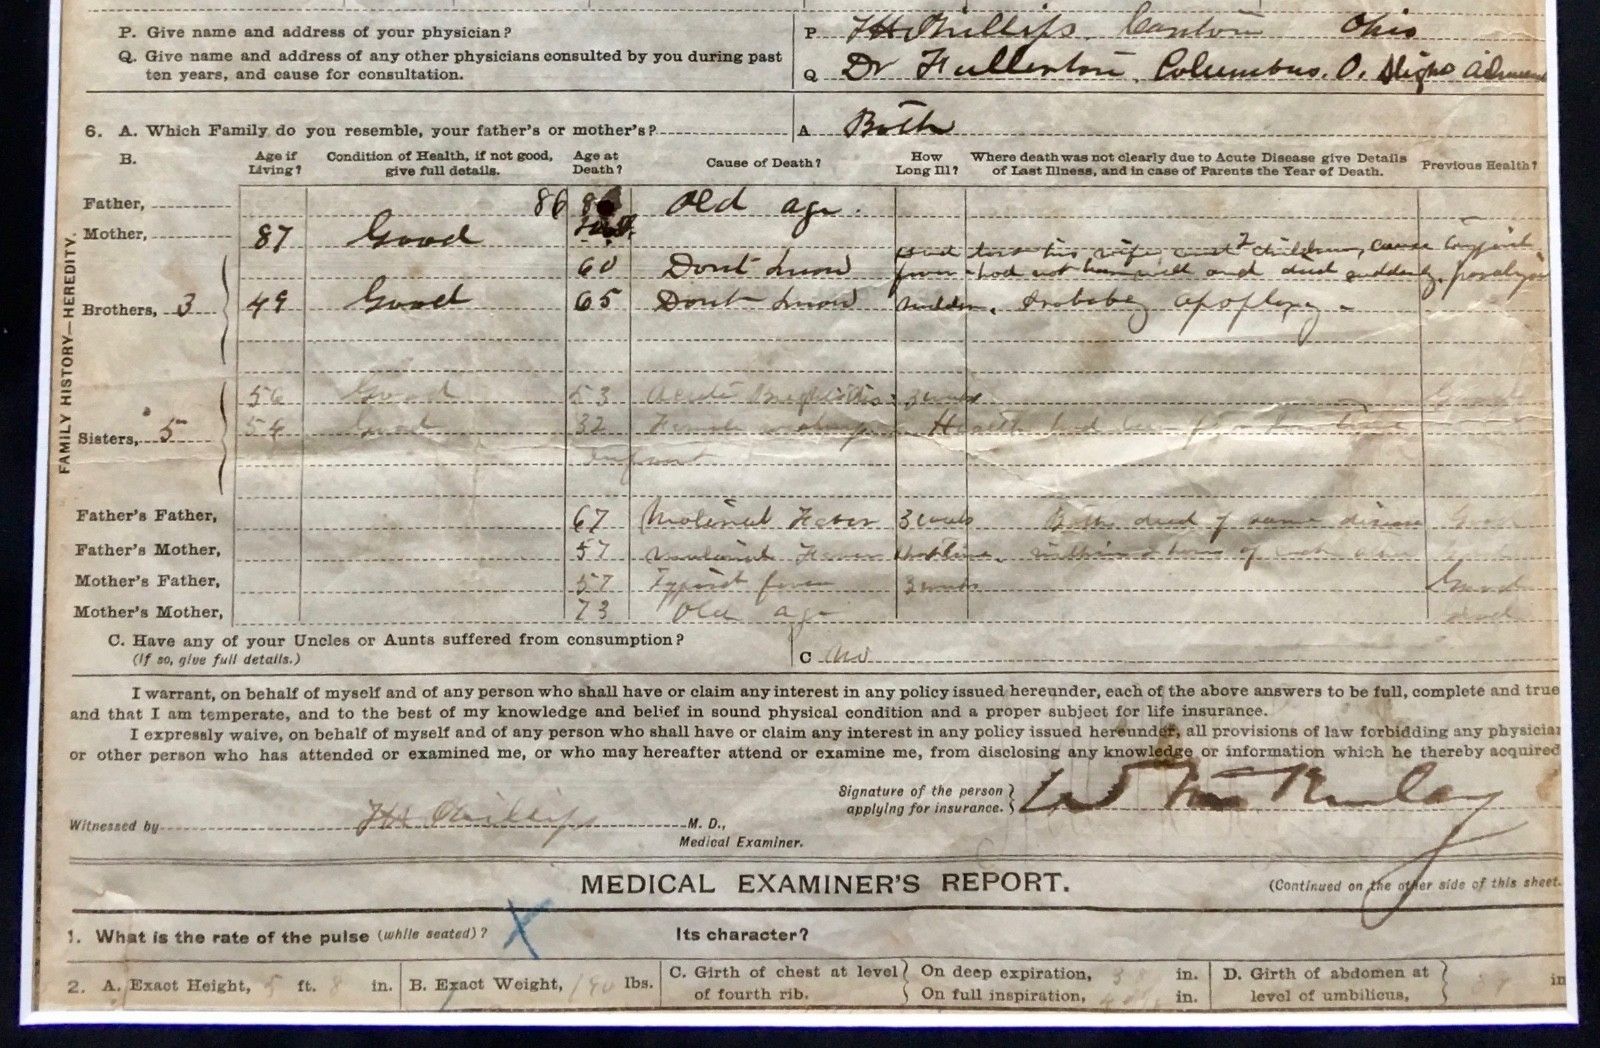 P. Give name and address of your physician? P THPhillips. Canton Ohio
Q. Give name and address of any other physicians consulted by you during past
ten years, and cause for consultation. Q Dr Fullerton, Columbus, O. Slight
6. A. Which Family do you resemble, your father's or mother's? A Both
B. Age if Living? Condition of Health, if not good, give full details. Age at Death? Cause of Death? How Long Ill? Where death was not clearly due to Acute Disease give Details of Last Illness, and in case of Parents the Year of Death. Previous Health?
FAMILY HISTORY—HEREDITY.
Father, 86 Old age.
Mother, 87 Good
had lost his wife and 2 children, cause typhoid
60 Dont know fever - had not been well and died suddenly, paralysis
Brothers, 3 49 Good 65 Dont know sudden. Probably apoplexy -
56 Good 53 Acute 3 weeks Good
Sisters, 5 54 Good 32 Female Health had been for time
Infant
Father's Father, 67 Malarial Fever 3 weeks Both died of same disease Good
Father's Mother, 57 Malarial Fever within hours of each other
Mother's Father, 57 Typoid fever 3 weeks Good
Mother's Mother, 73 Old age Good
C. Have any of your Uncles or Aunts suffered from consumption?
(If so, give full details.) C No
I warrant, on behalf of myself and of any person who shall have or claim any interest in any policy issued hereunder, each of the above answers to be full, complete and true
and that I am temperate, and to the best of my knowledge and belief in sound physical condition and a proper subject for life insurance.
I expressly waive, on behalf of myself and of any person who shall have or claim any interest in any policy issued hereunder, all provisions of law forbidding any physician
or other person who has attended or examined me, or who may hereafter attend or examine me, from disclosing any knowledge or information which he thereby acquired
Signature of the person applying for insurance. Wm McKinley
Witnessed by TH Phillips M. D.,
Medical Examiner.
MEDICAL EXAMINER'S REPORT. (Continued on the other side of this sheet.
1. What is the rate of the pulse (while seated)? X Its character?
2. A. Exact Height, 5 ft. 8 in. B. Exact Weight, 190 lbs. C. Girth of chest at level of fourth rib. On deep expiration, 38 in. On full inspiration, in. D. Girth of abdomen at level of umbilicus, in